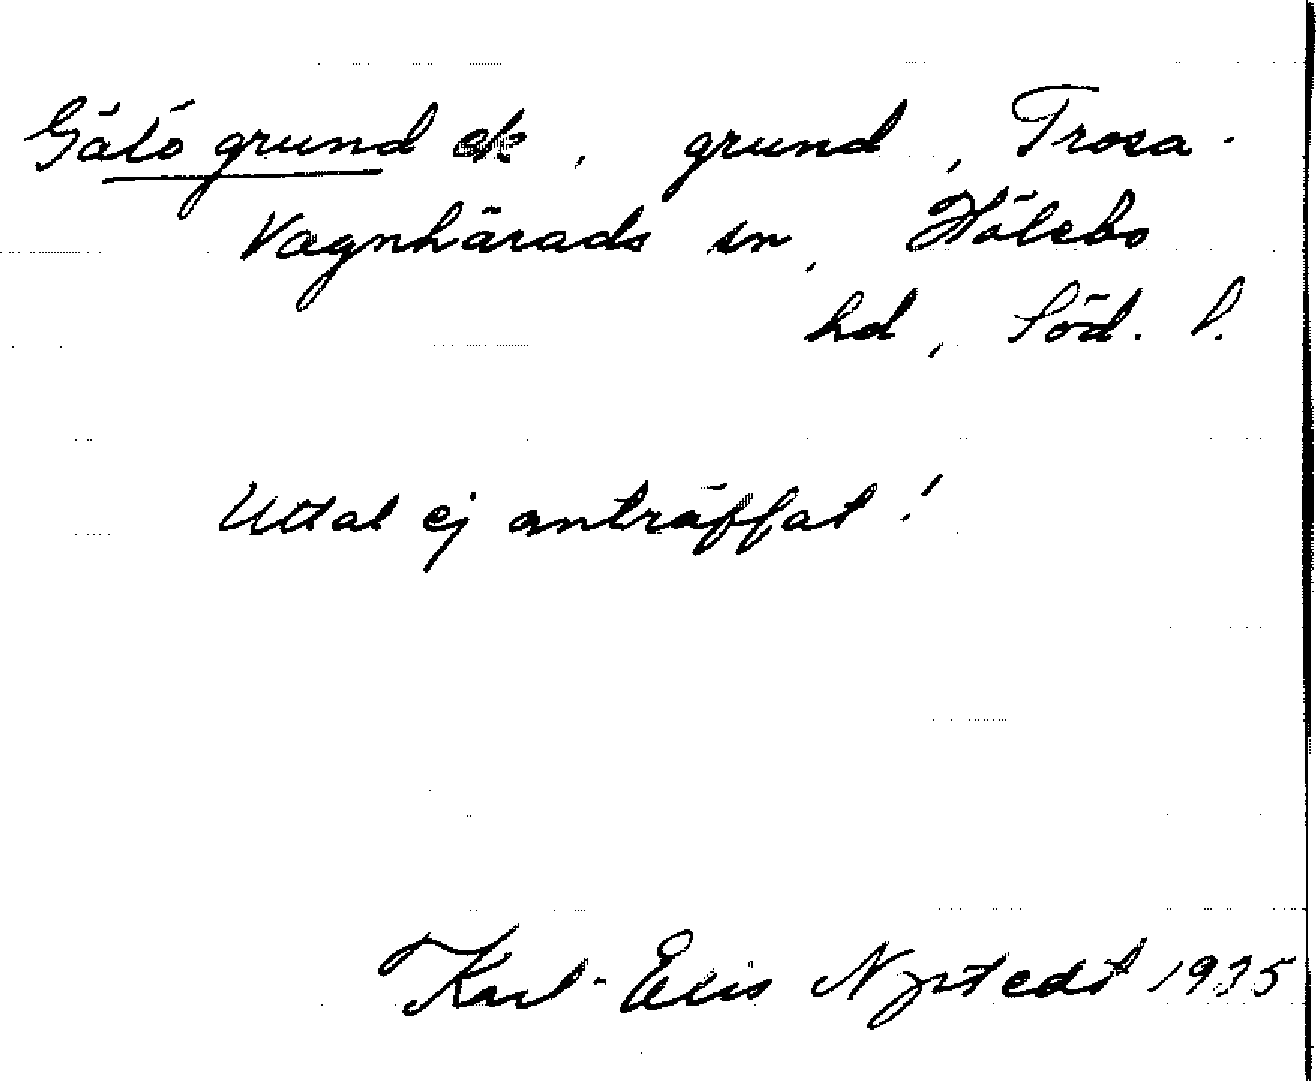 Gälö grund ek, grund, Trosa-
Vagnhärads sn, Hölebo
hd, Söd. l.
Uttal ej anträffat!
Karl-Elis Nystedt 1935